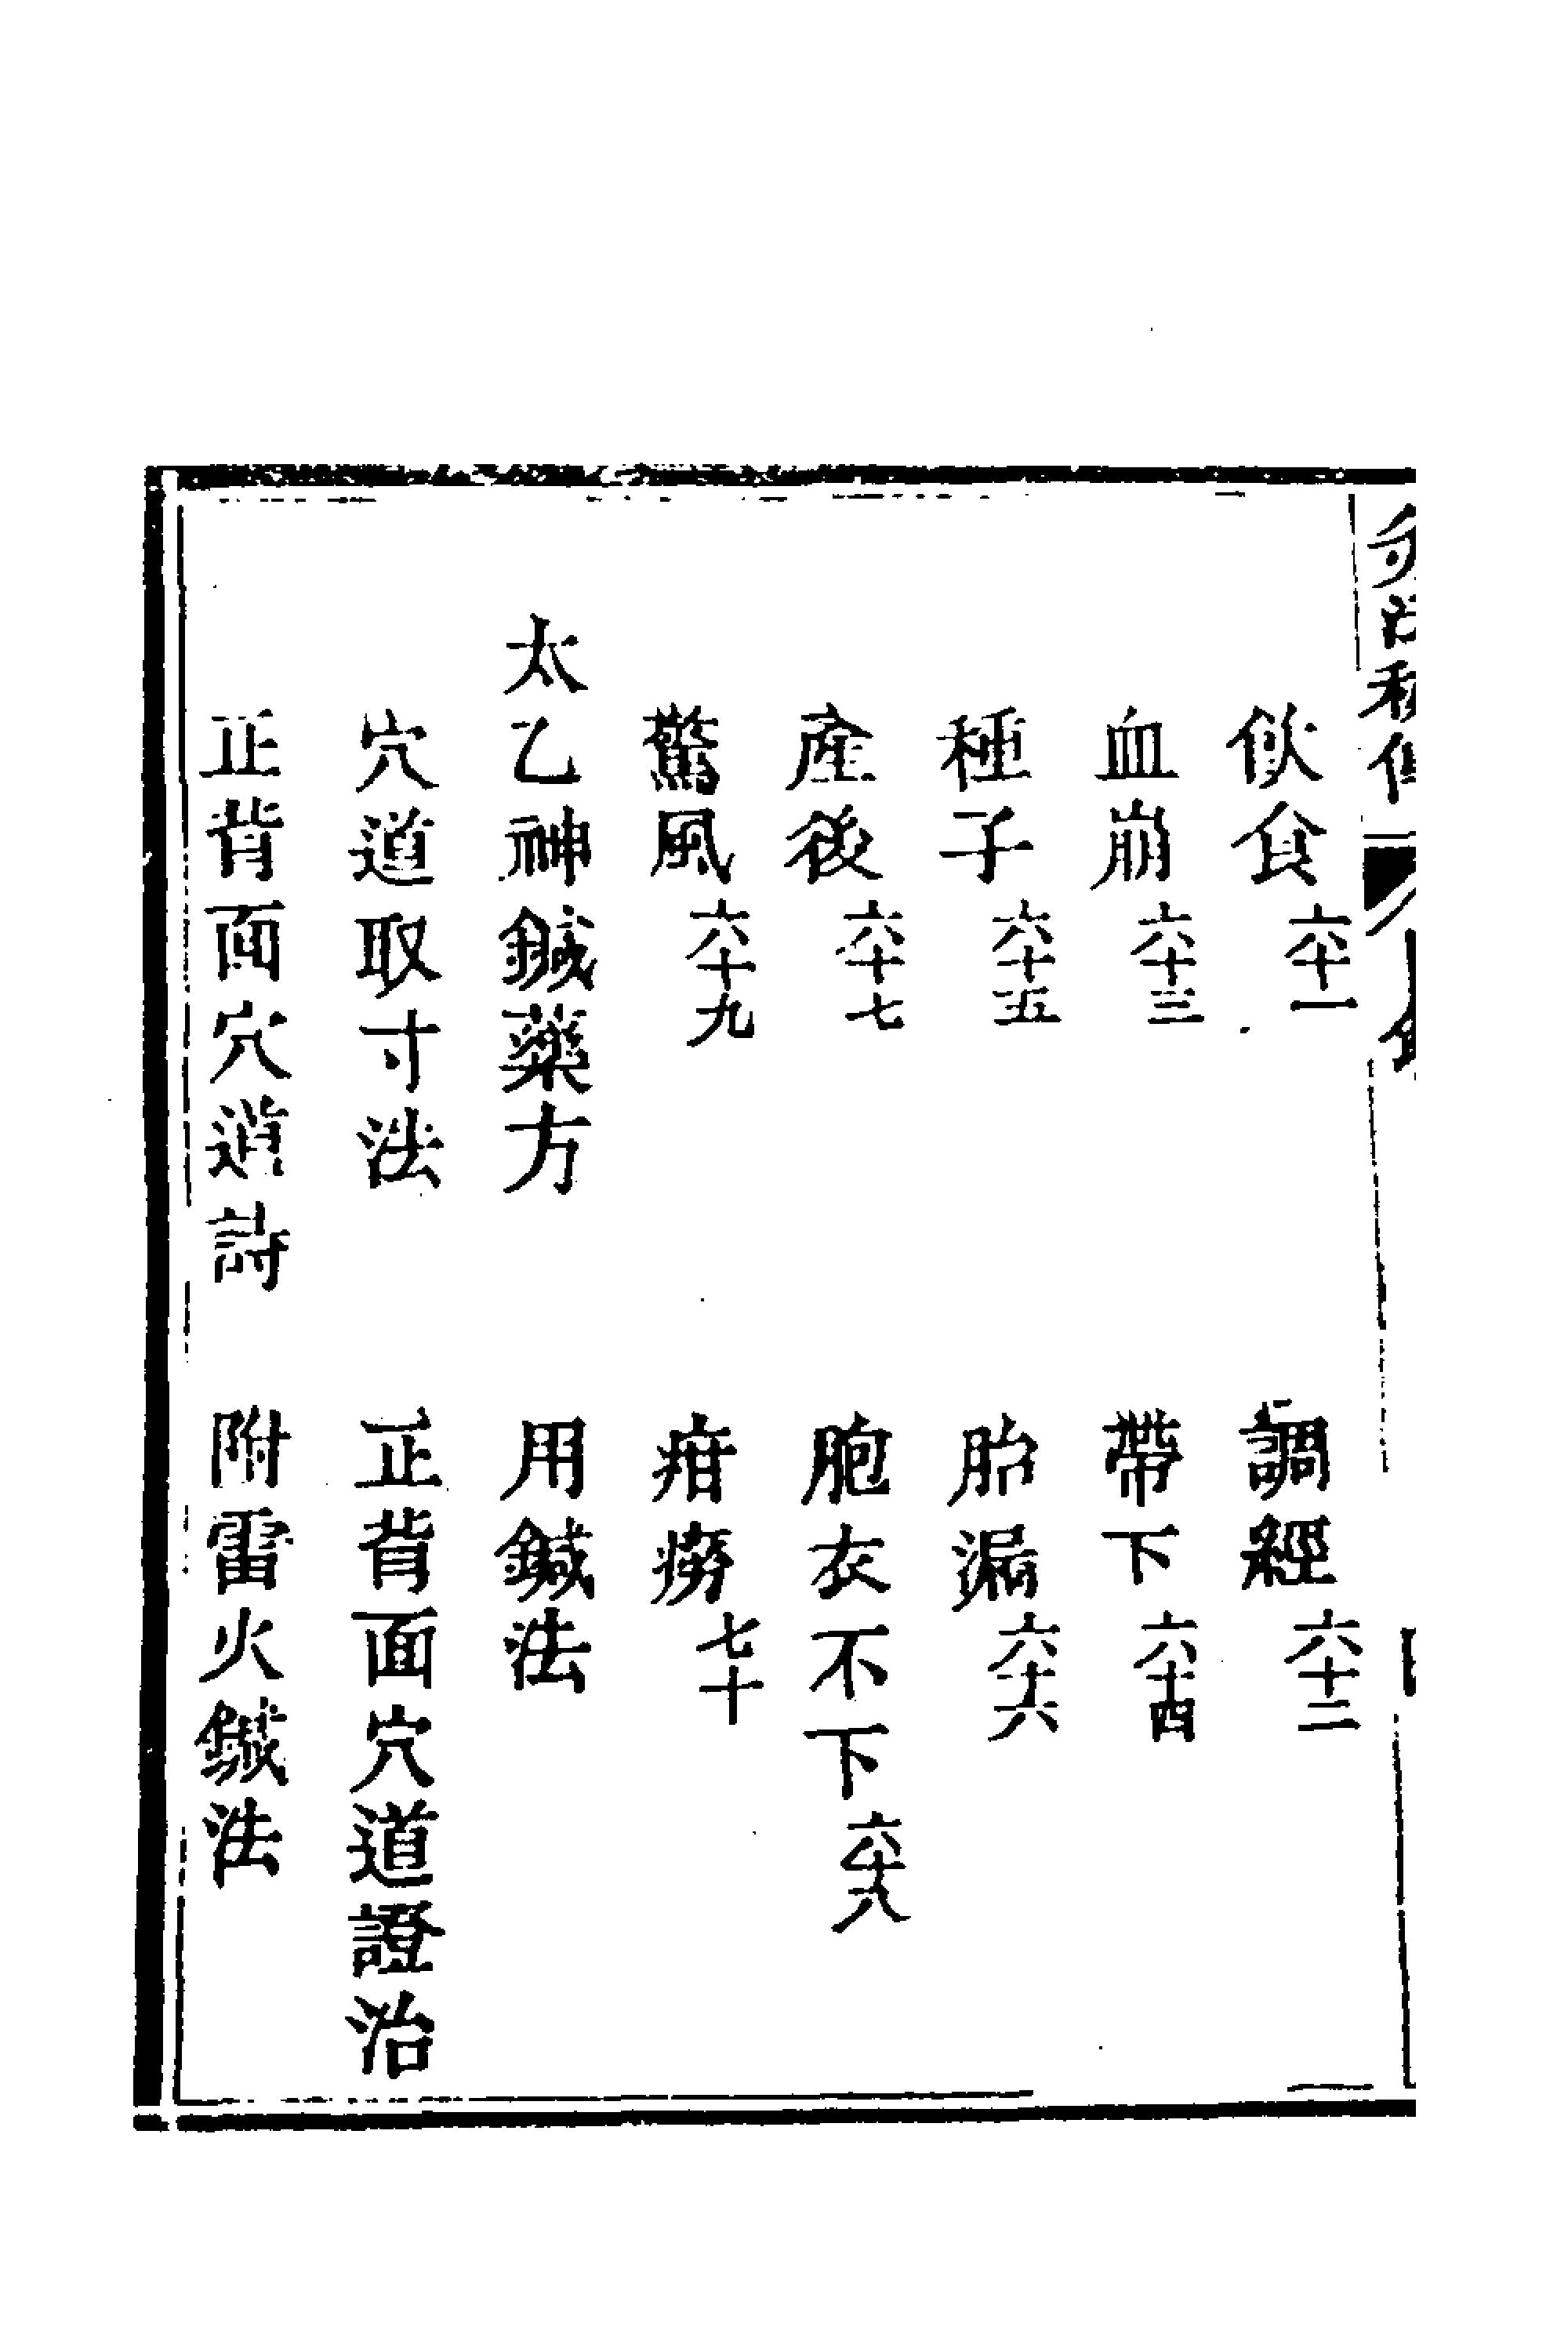 飲食六十一　調經六十二
血崩六十三　帶下六十四
種子六十五　胎漏六十六
產後六十七　胞衣不下六十八
驚風六十九　疳癆七十
太乙神鍼藥方　用鍼法
穴道取寸法　正背面穴道證治
正背面穴道詩　附雷火鍼法